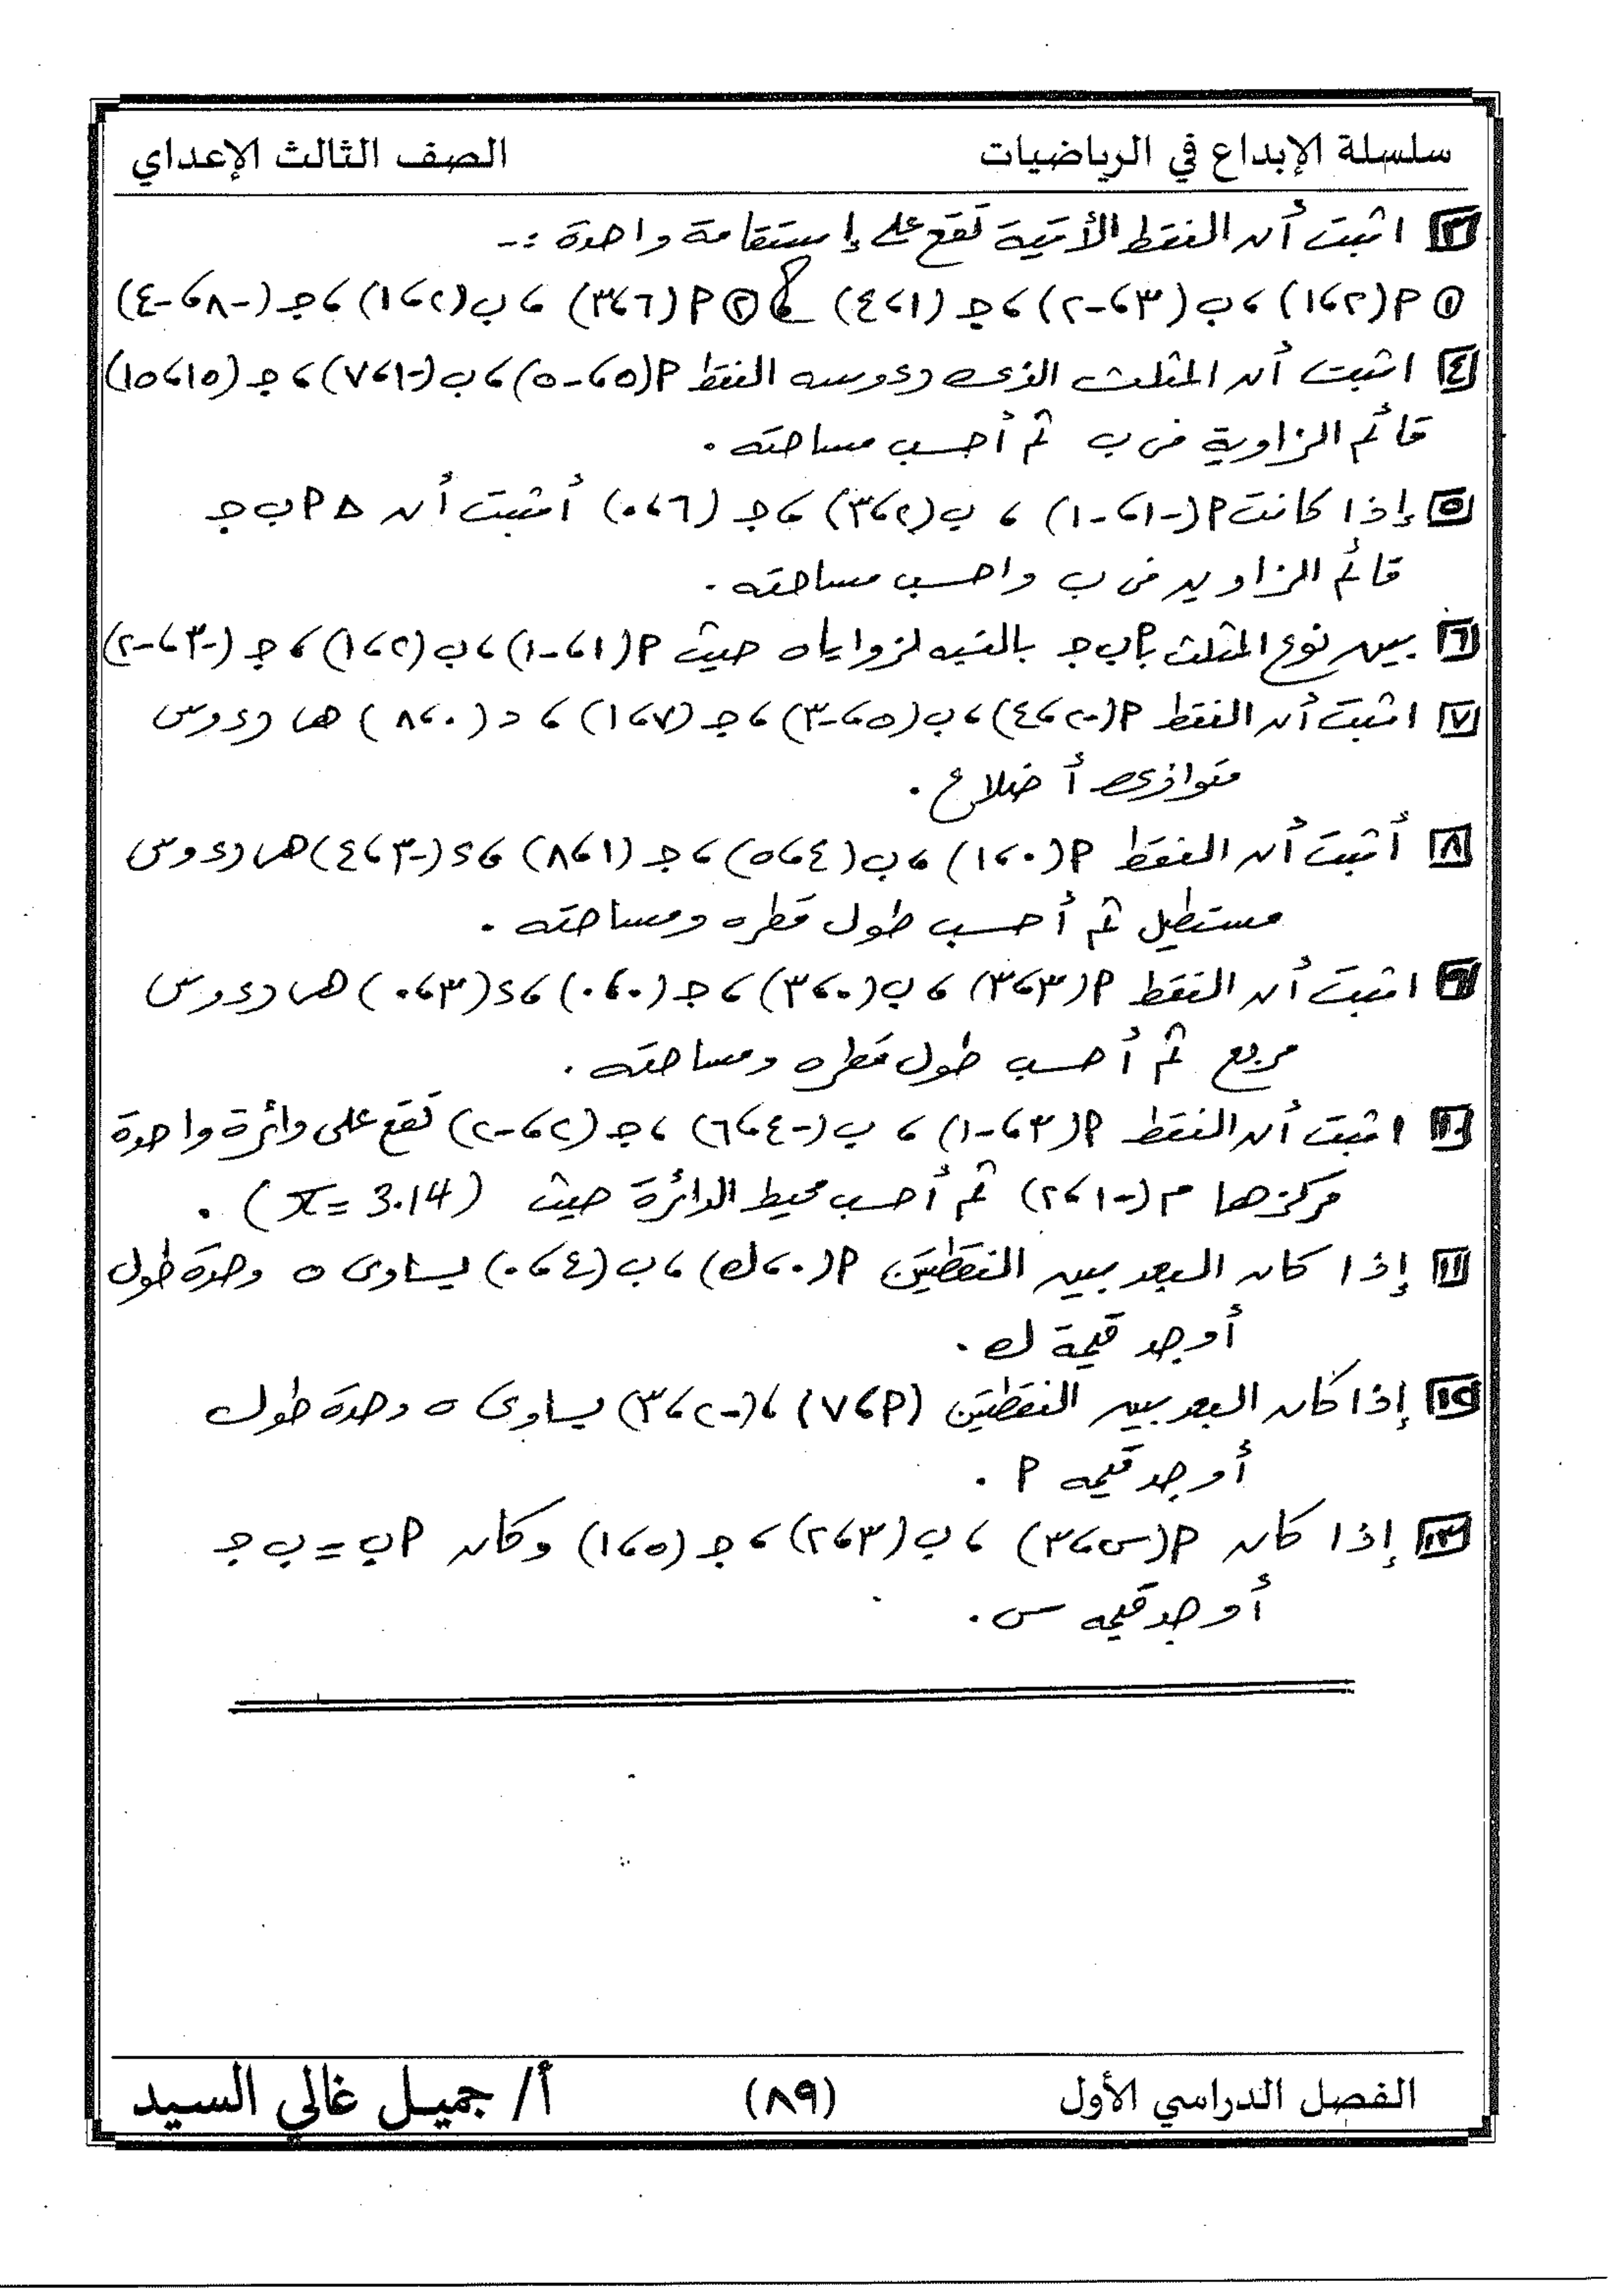 سلسلة الإبداع في الرياضيات
الصف الثالث الإعداي
٣ اثبت أن النقط الأتية تقع على إستقامة واحدة :-
① أ(٢، ١) ، ب(٣، -٢) ، جـ(١، ٤) ② أ(٦، ٣) ، ب(٢، ١) ، جـ(-٨، -٤)
٤ اثبت أن المثلث الذى رءوسه النقط أ(٥، -٥) ، ب(-١، ٧) ، جـ(١٥، ١٥)
قائم الزاوية فى ب ثم أحسب مساحته .
٥ إذا كانت أ(-١، -١) ، ب(٢، ٣) ، جـ(٦، ٠) أثبت أن Δ أ ب جـ
قائم الزاويه فى ب واحسب مساحته .
٦ بين نوع المثلث أ ب جـ بالنسبه لزواياه حيث أ(١، -١) ، ب(٢، ١) ، جـ(-٣، -٢)
٧ اثبت أن النقط أ(-٢، ٤) ، ب(٥، -٣) ، جـ(٧، ١) ، د(٠، ٨) هى رءوس
متوازى أضلاع .
٨ أثبت أن النقط أ(٠، ١) ، ب(٤، ٥) ، جـ(١، ٨) ، ء(-٣، ٤) هى رءوس
مستطيل ثم أحسب طول قطره ومساحته .
٩ اثبت أن النقط أ(٣، ٣) ، ب(٠، ٣) ، جـ(٠، ٠) ، ء(٣، ٠) هى رءوس
مربع ثم أحسب طول قطره ومساحته .
١٠ اثبت أن النقط أ(٣، -١) ، ب(-٤، ٦) ، جـ(٢، -٢) تقع على دائرة واحدة
مركزها م(-١، ٢) ثم أحسب محيط الدائرة حيث (π = 3.14) .
١١ إذا كان البعد بين النقطتين أ(٠، ك) ، ب(٤، ٠) يساوى ٥ وحدة طول
أوجد قيمة ك .
١٢ إذا كان البعد بين النقطتين (أ، ٧) ، (-٢، ٣) يساوى ٥ وحدة طول
أوجد قيمه أ .
١٣ إذا كان أ(س، ٣) ، ب(٣، ٢) ، جـ(٥، ١) وكان أ ب = ب جـ
أوجد قيمه س .
الفصل الدراسي الأول
(٨٩)
أ/ جميل غالي السيد